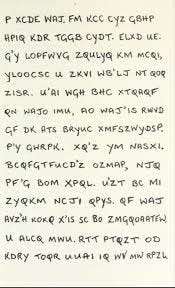 P XCDE WAJ. FM KCC CYZ GBHP
HPIQ KDR TGGB CYDT. ELXD UE.
G'Y LOPFWVG ZQULYQ KM MCQI,
YLOOCSC U ZKVI WB'LJ NT QOQ
ZISR. U'AI WGH BHC XTQAQF
QN WAJO IMU, AO WAJ'IS RWVD
GF DK ATS BRYUC XMFSZWYDSP.
P'Y GWRPK. XQ'Z YM NASXI.
BCQFGTFUCD'Z OZMAP, NJQ
PF'G BOM XPQL. U'ZT BC MI
ZYQKM NCJI QPYS. QF WAJ
AVZ'H KOKQ X'IS SC BO ZMGQOAATEW.
U ALCQ MWU. RTT PTQZT OD
KDRY TOQR UUAI IQ WV MW RPZL